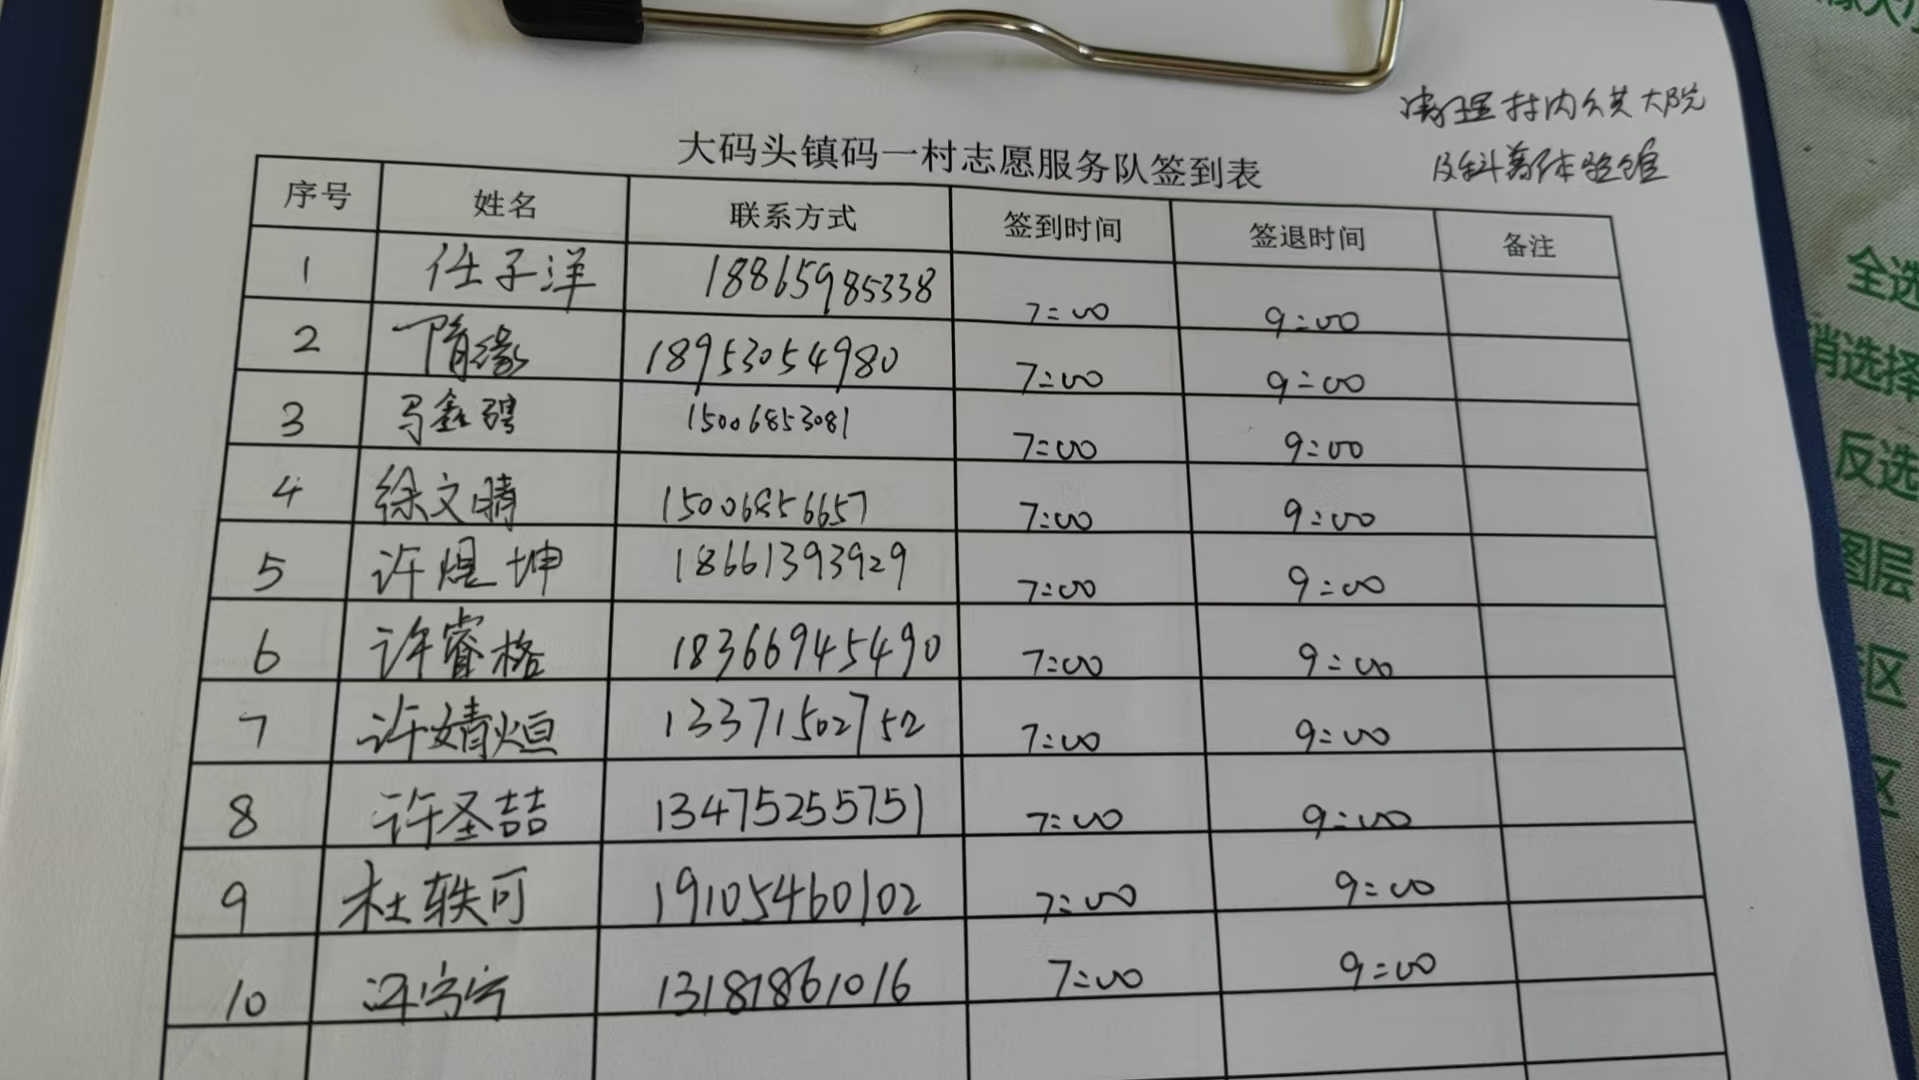 清理村内公共大院
大码头镇码一村志愿服务队签到表
序号 姓名 联系方式 签到时间 签退时间 备注
1 任子洋 18865985338 7:00 9:00
2 隋缘 18953054980 7:00 9:00
3 马鑫骋 15006853081 7:00 9:00
4 徐文晴 15006856657 7:00 9:00
5 许煜坤 18661393929 7:00 9:00
6 许睿格 18366945490 7:00 9:00
7 许婧烜 13371502752 7:00 9:00
8 许圣喆 13475255751 7:00 9:00
9 杜轶可 19105460102 7:00 9:00
10 13181861016 7:00 9:00
全选
消选择
反选
图层
区
区